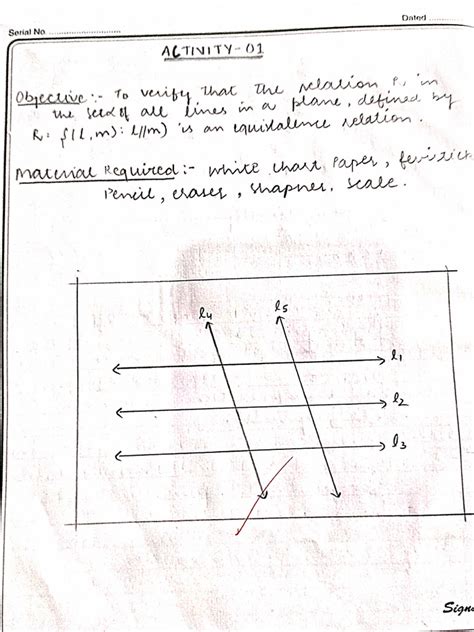 Dated
Serial No.
ACTIVITY-01
Objective:- To verify that the relation R, in
the set of all lines in a plane, defined by
R: {(l, m): l//m) is an equivalence relation.
Material Required:- White chart Paper, fevistick
Pencil, eraser, shapner, scale.
l4 l5
l1
l2
l3
Sign